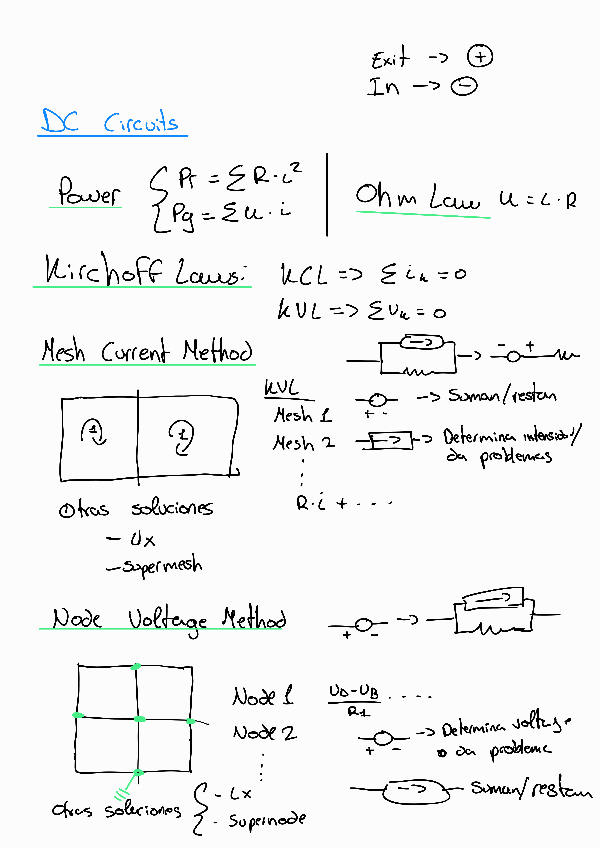 Exit -> ⊕
In -> ⊖
DC Circuits
Power { Pr = ΣR·i²
Pg = Σu·i
Ohm Law u = i·R
Kirchoff Laws:
KCL => Σik = 0
KVL => Σuk = 0
Mesh Current Method
-> - +
KVL
Mesh 1
Mesh 2
⋮
R·i + ...
+ - -> Suman/restan
-> -> Determina intensidad/
da problemas
1 1
Otras soluciones
- Ux
- Supermesh
Node Voltage Method
+ - -> ->
Node 1 UA-UB/R1 ....
Node 2
⋮
+ - -> Determina voltage
o da probleme
-> -> Suman/restan
Otras soluciones { - ix
- Supernode